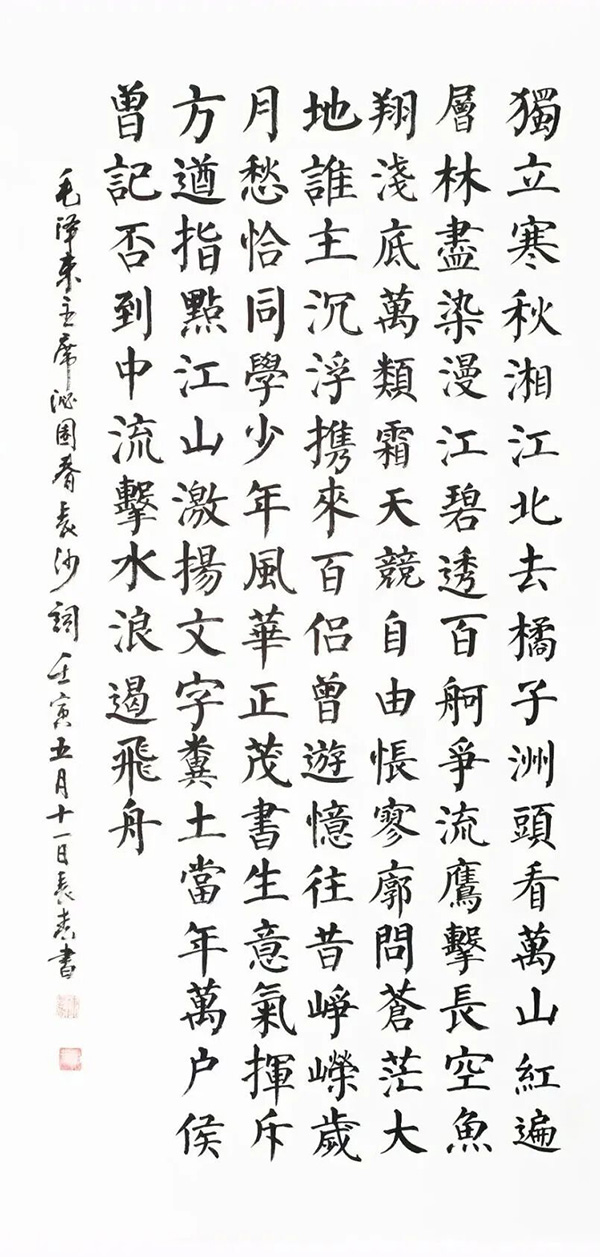 獨立寒秋湘江北去橘子洲頭看萬山紅遍
層林盡染漫江碧透百舸爭流鷹擊長空魚
翔淺底萬類霜天競自由悵寥廓問蒼茫大
地誰主沉浮携來百侣曾遊憶往昔崢嶸歲
月愁恰同學少年風華正茂書生意氣揮斥
方遒指點江山激揚文字糞土當年萬户侯
曾記否到中流擊水浪遏飛舟
毛泽東主席沁園春長沙詞壬寅五月十一日書